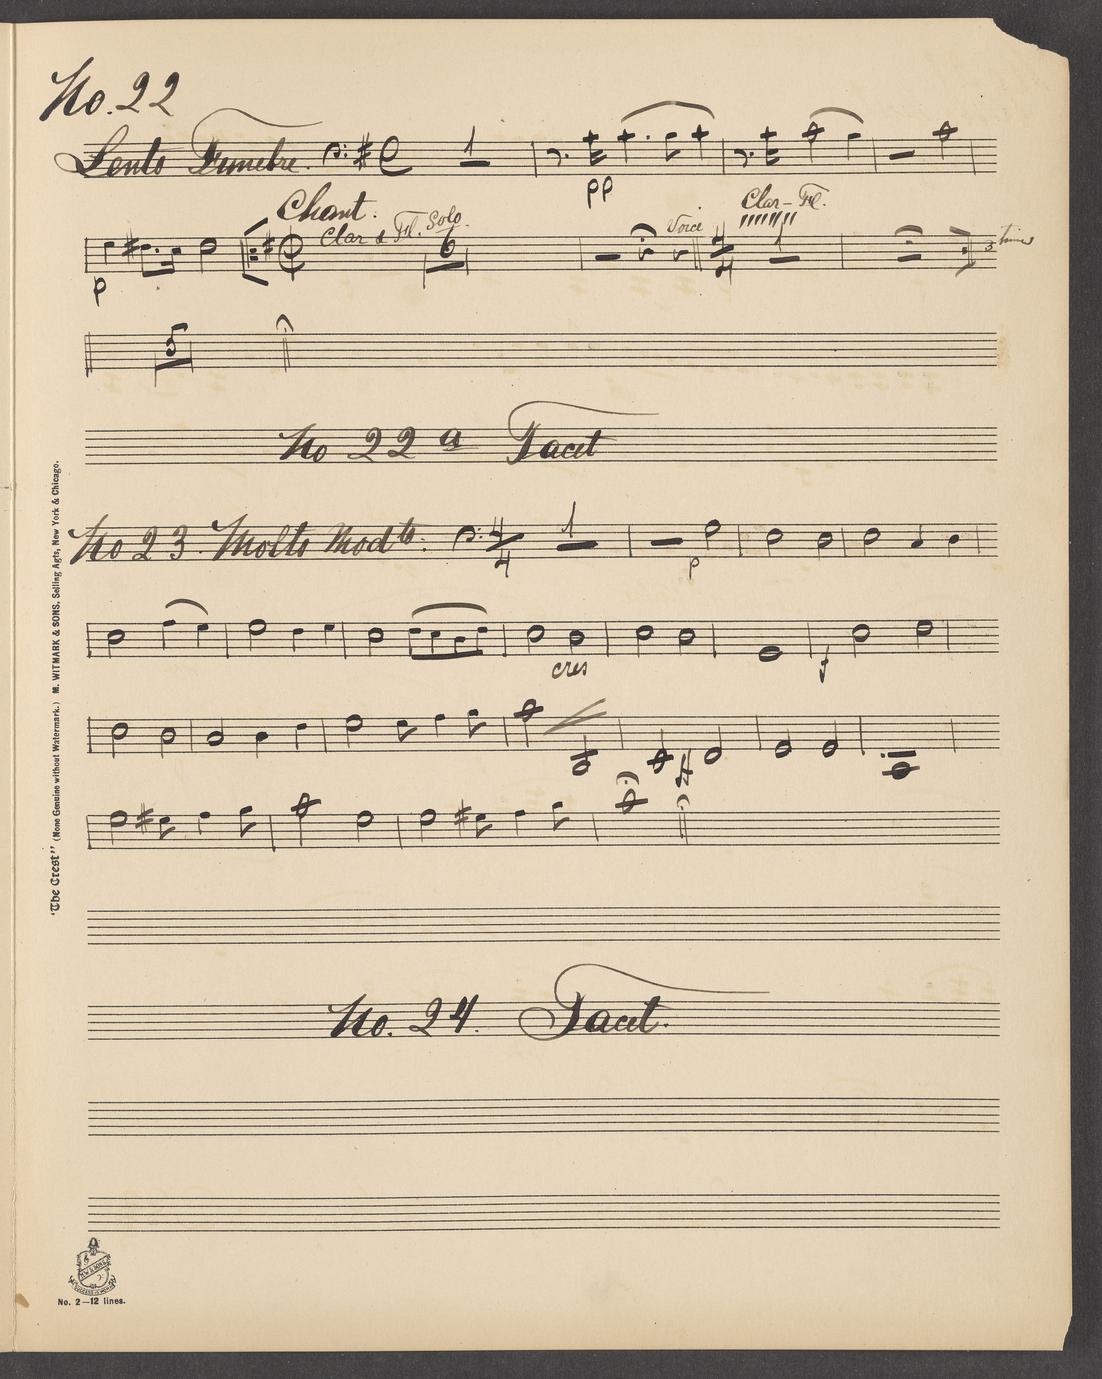 No. 22
Lento Funebre. 1
pp
Chant.
Clar & Fl. Solo.
6
Voice
Clar-Fl.
4/4 1
3 times
p
5
No 22 a Tacet
No 23. Molto Modto. 4/4 1
p
cres
f
ff
No. 24. Tacet.
"The Crest" (None Genuine without Watermark.) M. WITMARK & SONS, Selling Agts, New York & Chicago.
No. 2—12 lines.